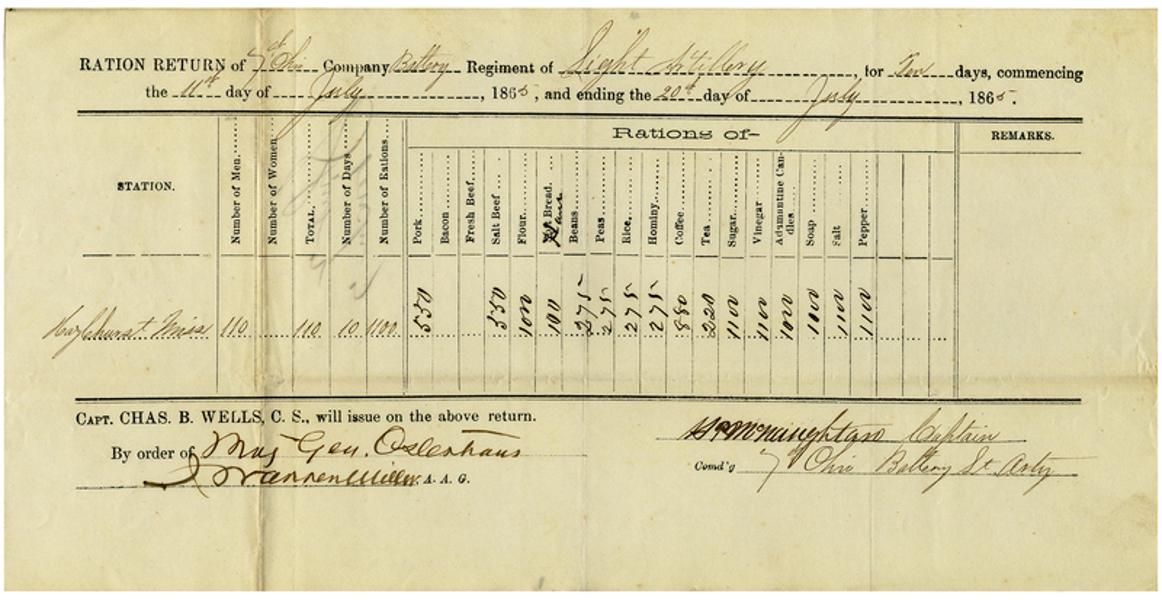 RATION RETURN of 7th Ohio Company Battery Regiment of Light Artillery, for Ten days, commencing
the 11th day of July, 1865, and ending the 20th day of July, 1865.
Rations of-
REMARKS.
STATION.
Number of Men.
Number of Women
TOTAL.
Number of Days
Number of Rations.
Pork
Bacon
Fresh Beef
Salt Beef
Flour.
Bread.
Beans
Peas
Rice.
Hominy
Coffee
Tea
Sugar.
Vinegar
Adamantine Candles
Soap
Salt
Pepper
Hazlehurst Miss 110 110 10 1100 550 550 1000 100 275 275 275 275 880 220 1100 1100 1000 1100 1100 1100
CAPT. CHAS. B. WELLS, C. S., will issue on the above return.
By order of Maj Gen. Osterhaus
Warren Miller, A. A. G.
McNaughton Captain
Comd'g 7th Ohio Battery Lt. Arty